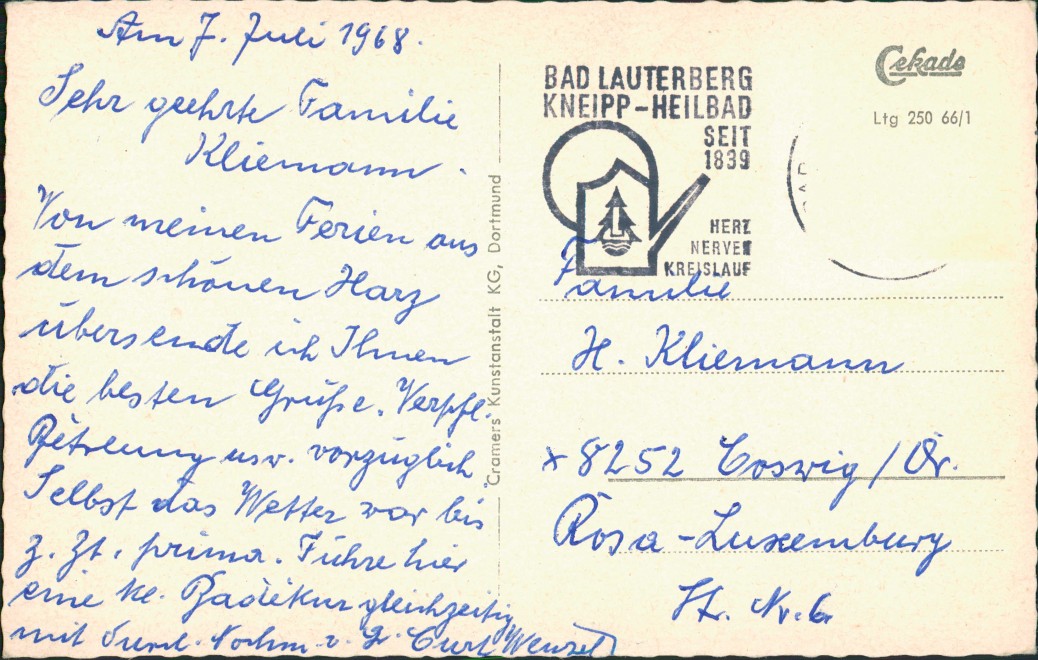 Am 7. Juli 1968.
Sehr geehrte Familie
Kliemann.
Von meinen Ferien aus
dem schönen Harz
übersende ich Ihnen
die besten Grüße. Verpfl.
Betreuung usw. vorzüglich
Selbst das Wetter war bis
z. Zt. prima. Führe hier
eine kl. Badekur gleichzeitig
mit durch. Nochm. v. G. Curt Wenzel
Cramers Kunstanstalt KG, Dortmund
BAD LAUTERBERG
KNEIPP-HEILBAD
SEIT
1839
HERZ
NERVEN
KREISLAUF
Cekade
Ltg 250 66/1
Familie
H. Kliemann
x 8252 Coswig / Dr.
Rosa-Luxemburg
St. Nr. 6